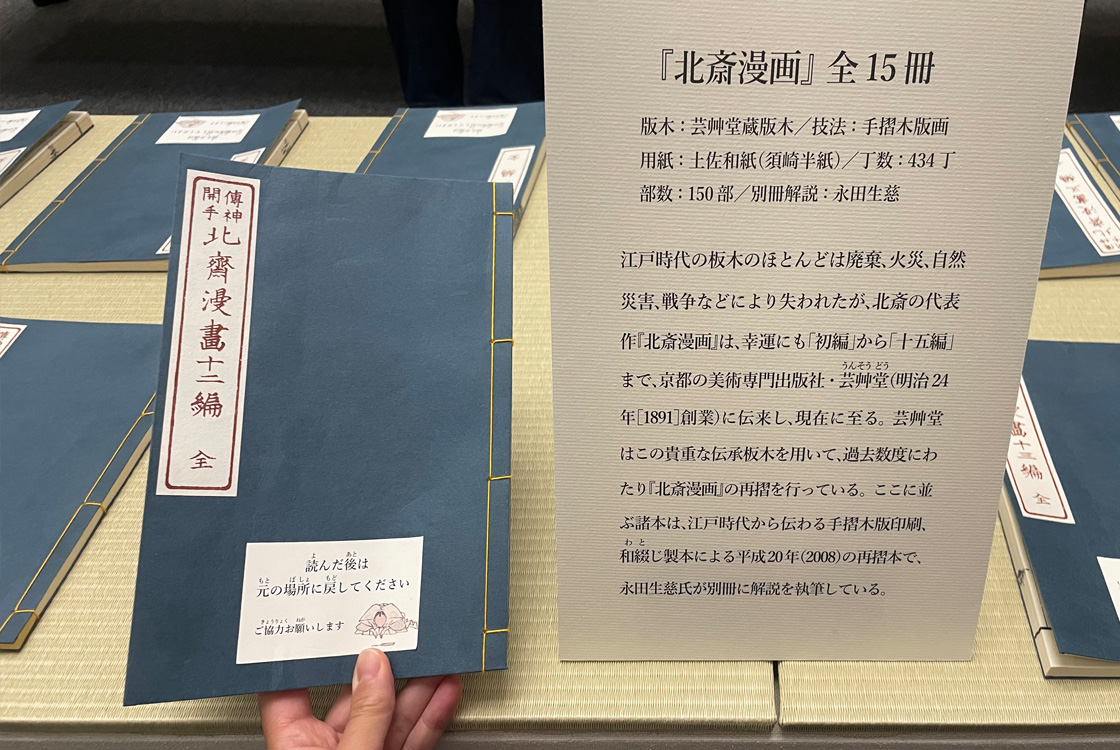 傳神
開手
北齋漫畫十二編 全
読んだ後は
元の場所に戻してください
ご協力お願いします
『北斎漫画』全15冊
版木：芸艸堂蔵版木／技法：手摺木版画
用紙：土佐和紙（須崎半紙）／丁数：434丁
部数：150部／別冊解説：永田生慈
江戸時代の板木のほとんどは廃棄、火災、自然
災害、戦争などにより失われたが、北斎の代表
作『北斎漫画』は、幸運にも「初編」から「十五編」
まで、京都の美術専門出版社・芸艸堂（明治24
年［1891］創業）に伝来し、現在に至る。芸艸堂
はこの貴重な伝承板木を用いて、過去数度にわ
たり『北斎漫画』の再摺を行っている。ここに並
ぶ諸本は、江戸時代から伝わる手摺木版印刷、
和綴じ製本による平成20年（2008）の再摺本で、
永田生慈氏が別冊に解説を執筆している。
畫十三編 全